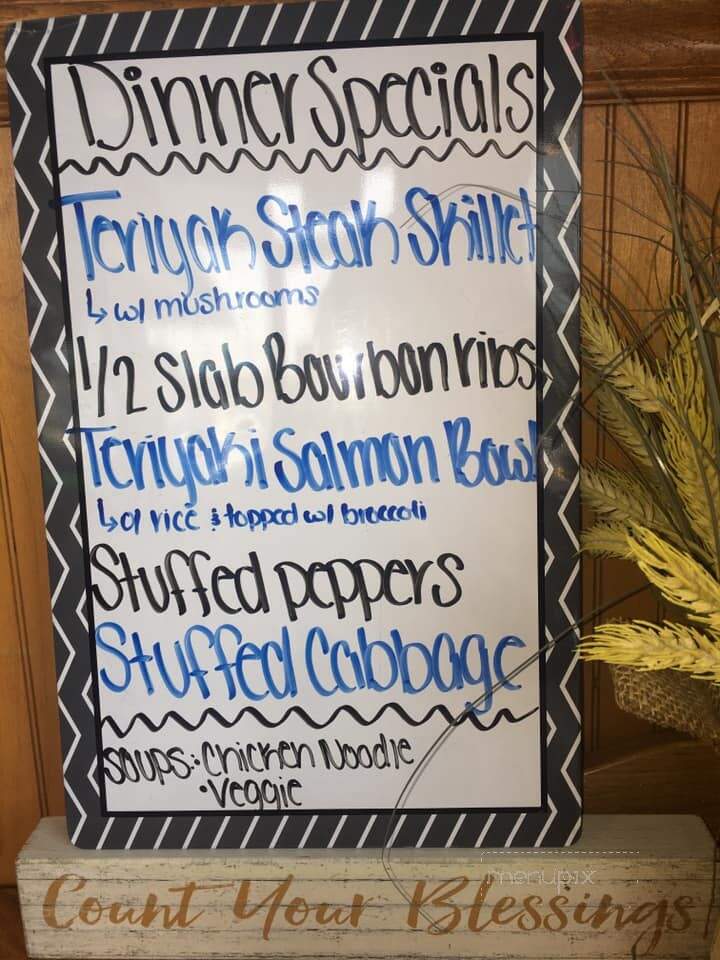 Dinner Specials
Teriyak Steak Skillet
↳ w/ mushrooms
1/2 Slab Bourbon ribs
Teriyaki Salmon Bowl
↳ o/ rice & topped w/ broccoli
Stuffed peppers
Stuffed Cabbage
Soups: • Chicken Noodle
• Veggie
menupix
Count Your Blessings